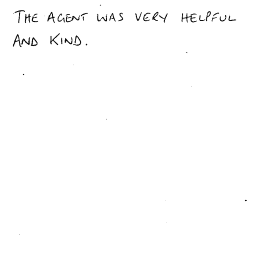 THE AGENT WAS VERY HELPFUL
AND KIND.